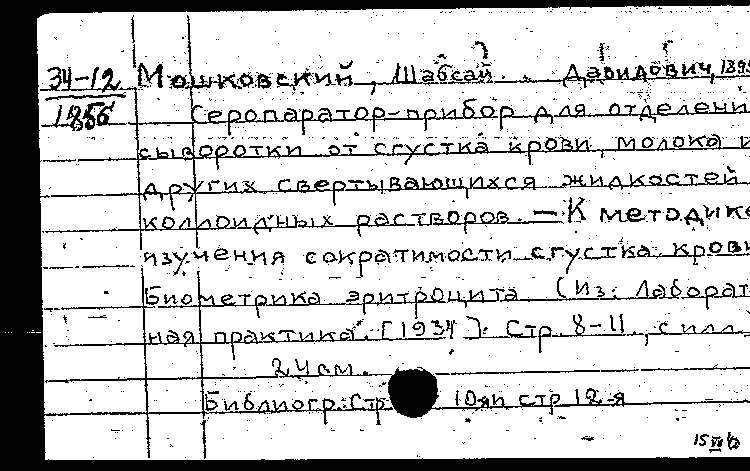 34-12 Мошковский, Шабсай Давидович, 1895
1856 Серопаратор-прибор для отделени
сыворотки от сгустка крови, молока и
других свертывающихся жидкостей
коллоидных растворов. — К методике
изучения сократимости сгустка крови
Биометрика эритроцита (Из: Лаборат
ная практика. [1934]. Стр. 8-11, с илл
24 см.
Библиогр.: Стр 10-я и стр 12-я